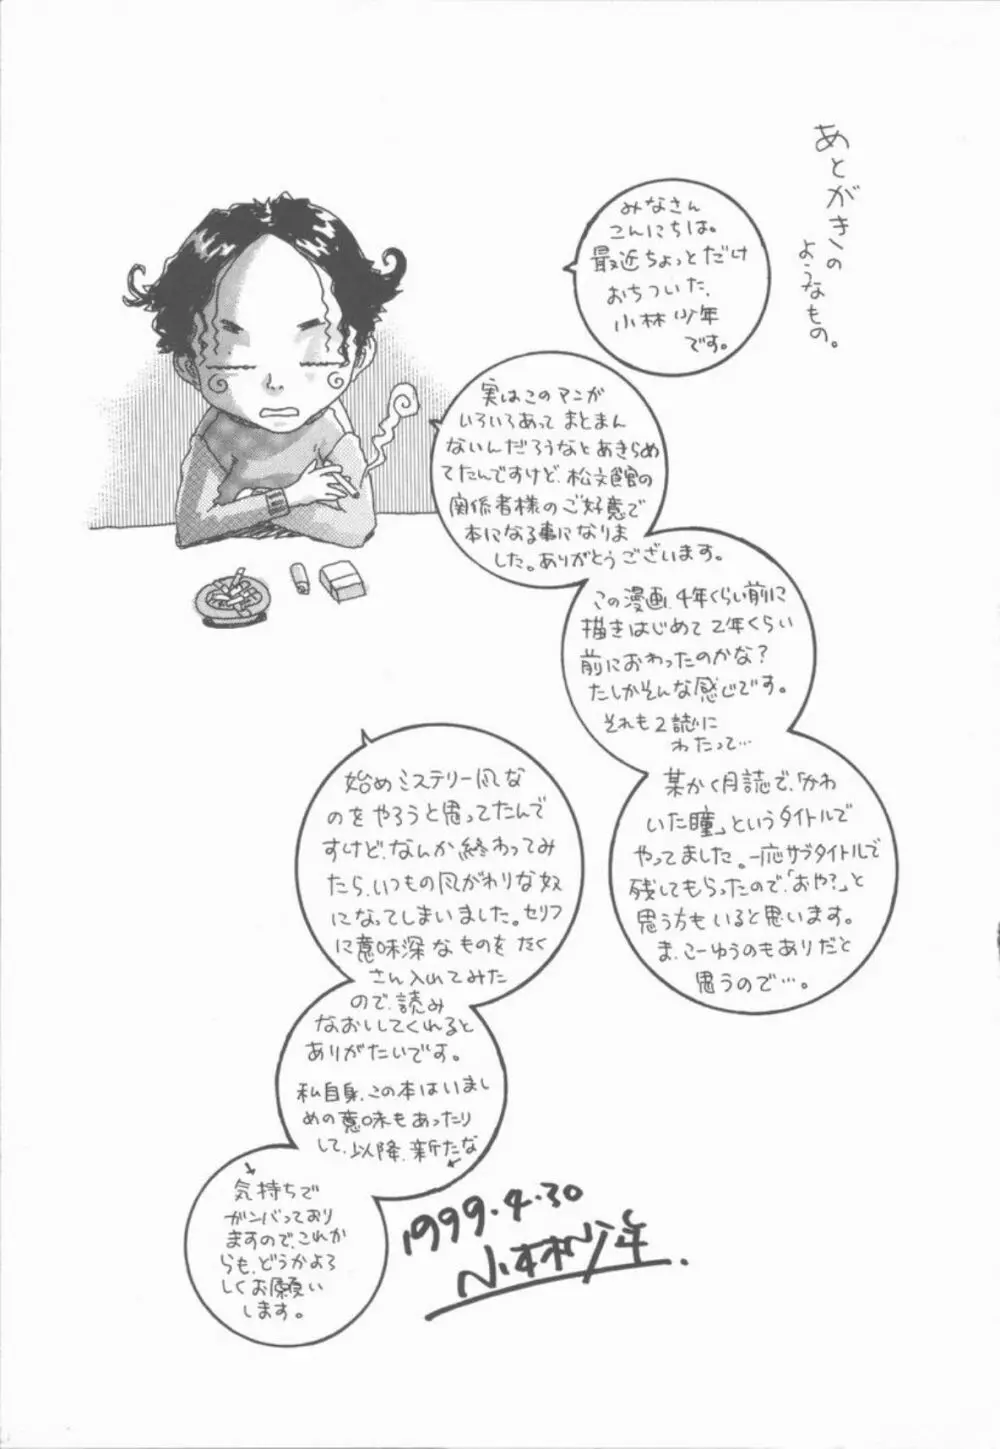 あとがきの
ようなもの。
みなさん
こんにちは。
最近ちょっとだけ
おちついた、
小林少年
です。
実はこのマンガ
いろいろあって まとまん
ないんだろうなと あきらめ
てたんですけど、松文館の
関係者様のご好意で
本になる事になりま
した。ありがとうございます。
この漫画、4年くらい前に
描きはじめて 2年くらい
前におわったのかな?
たしかそんな感じです。
それも2誌に
わたって…
某かく月誌で、「かわ
いた瞳」というタイトルで
やってました。一応サブタイトルで
残してもらったので、「おや?」と
思う方もいると思います。
ま、こーゆうのもありだと
思うので…。
始めミステリー風な
のをやろうと思ってたんで
すけど、なんか終わってみ
たら、いつもの風がわりな奴
になってしまいました。セリフ
に意味深なものをたく
さん入れてみた
ので、読み
なおししてくれると
ありがたいです。
私自身、この本はいまし
めの意味もあったり
して、以降、新たな
気持ちで
ガンバっており
ますので、これか
らも、どうかよろ
しくお願い
します。
1999.4.30
小林少年.